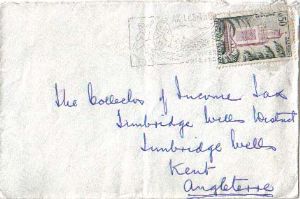 The Collector of Income Tax
Tunbridge Wells District
Tunbridge Wells
Kent
Angleterre